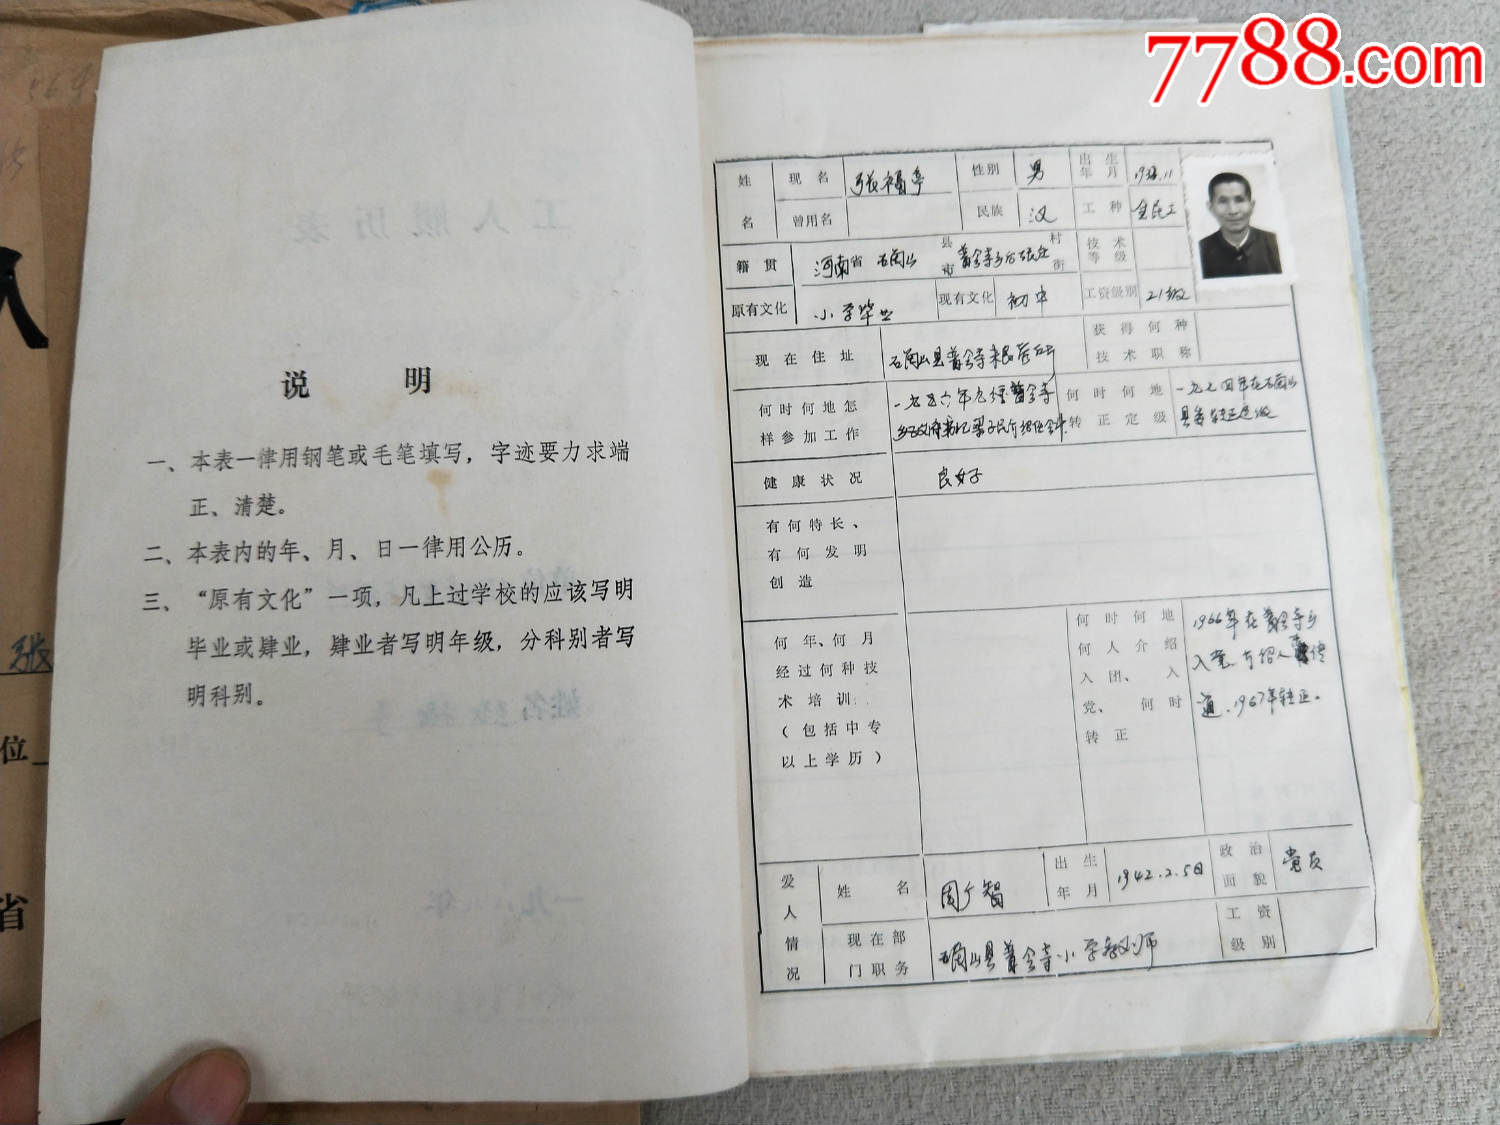 7788.com
说 明
一、本表一律用钢笔或毛笔填写，字迹要力求端
正、清楚。
二、本表内的年、月、日一律用公历。
三、“原有文化”一项，凡上过学校的应该写明
毕业或肄业，肄业者写明年级，分科别者写
明科别。
张
位
省
姓 名
现 名 张福亭 性别 男 出 生 年 月
曾用名 民族 汉 工 种
籍 贯 河南省 县 市 村 街 技 术 等 级
原有文化 小学毕业 现有文化 初中 工资级别 21级
现 在 住 址 获 得 何 种 技 术 职 称
何 时 何 地 怎 样 参 加 工 作 一九五六年九经普会寺
何 时 何 地 转 正 定 级 一九七四年在石岗山
健 康 状 况 良好
有 何 特 长 、
有 何 发 明
创 造
何 年、何 月
经 过 何 种 技
术 培 训：
（ 包 括 中 专
以 上 学 历 ）
何 时 何 地
何 人 介 绍
入 团、 入
党、 何 时
转 正
1966年在普会寺乡
入党，介绍人 传
道，1967年转正。
爱 人 情 况
姓 名 周广智 出 生 年 月 1942.2.5日 政 治 面 貌 党员
现 在 部 门 职 务 普会寺小学教师 工 资 级 别